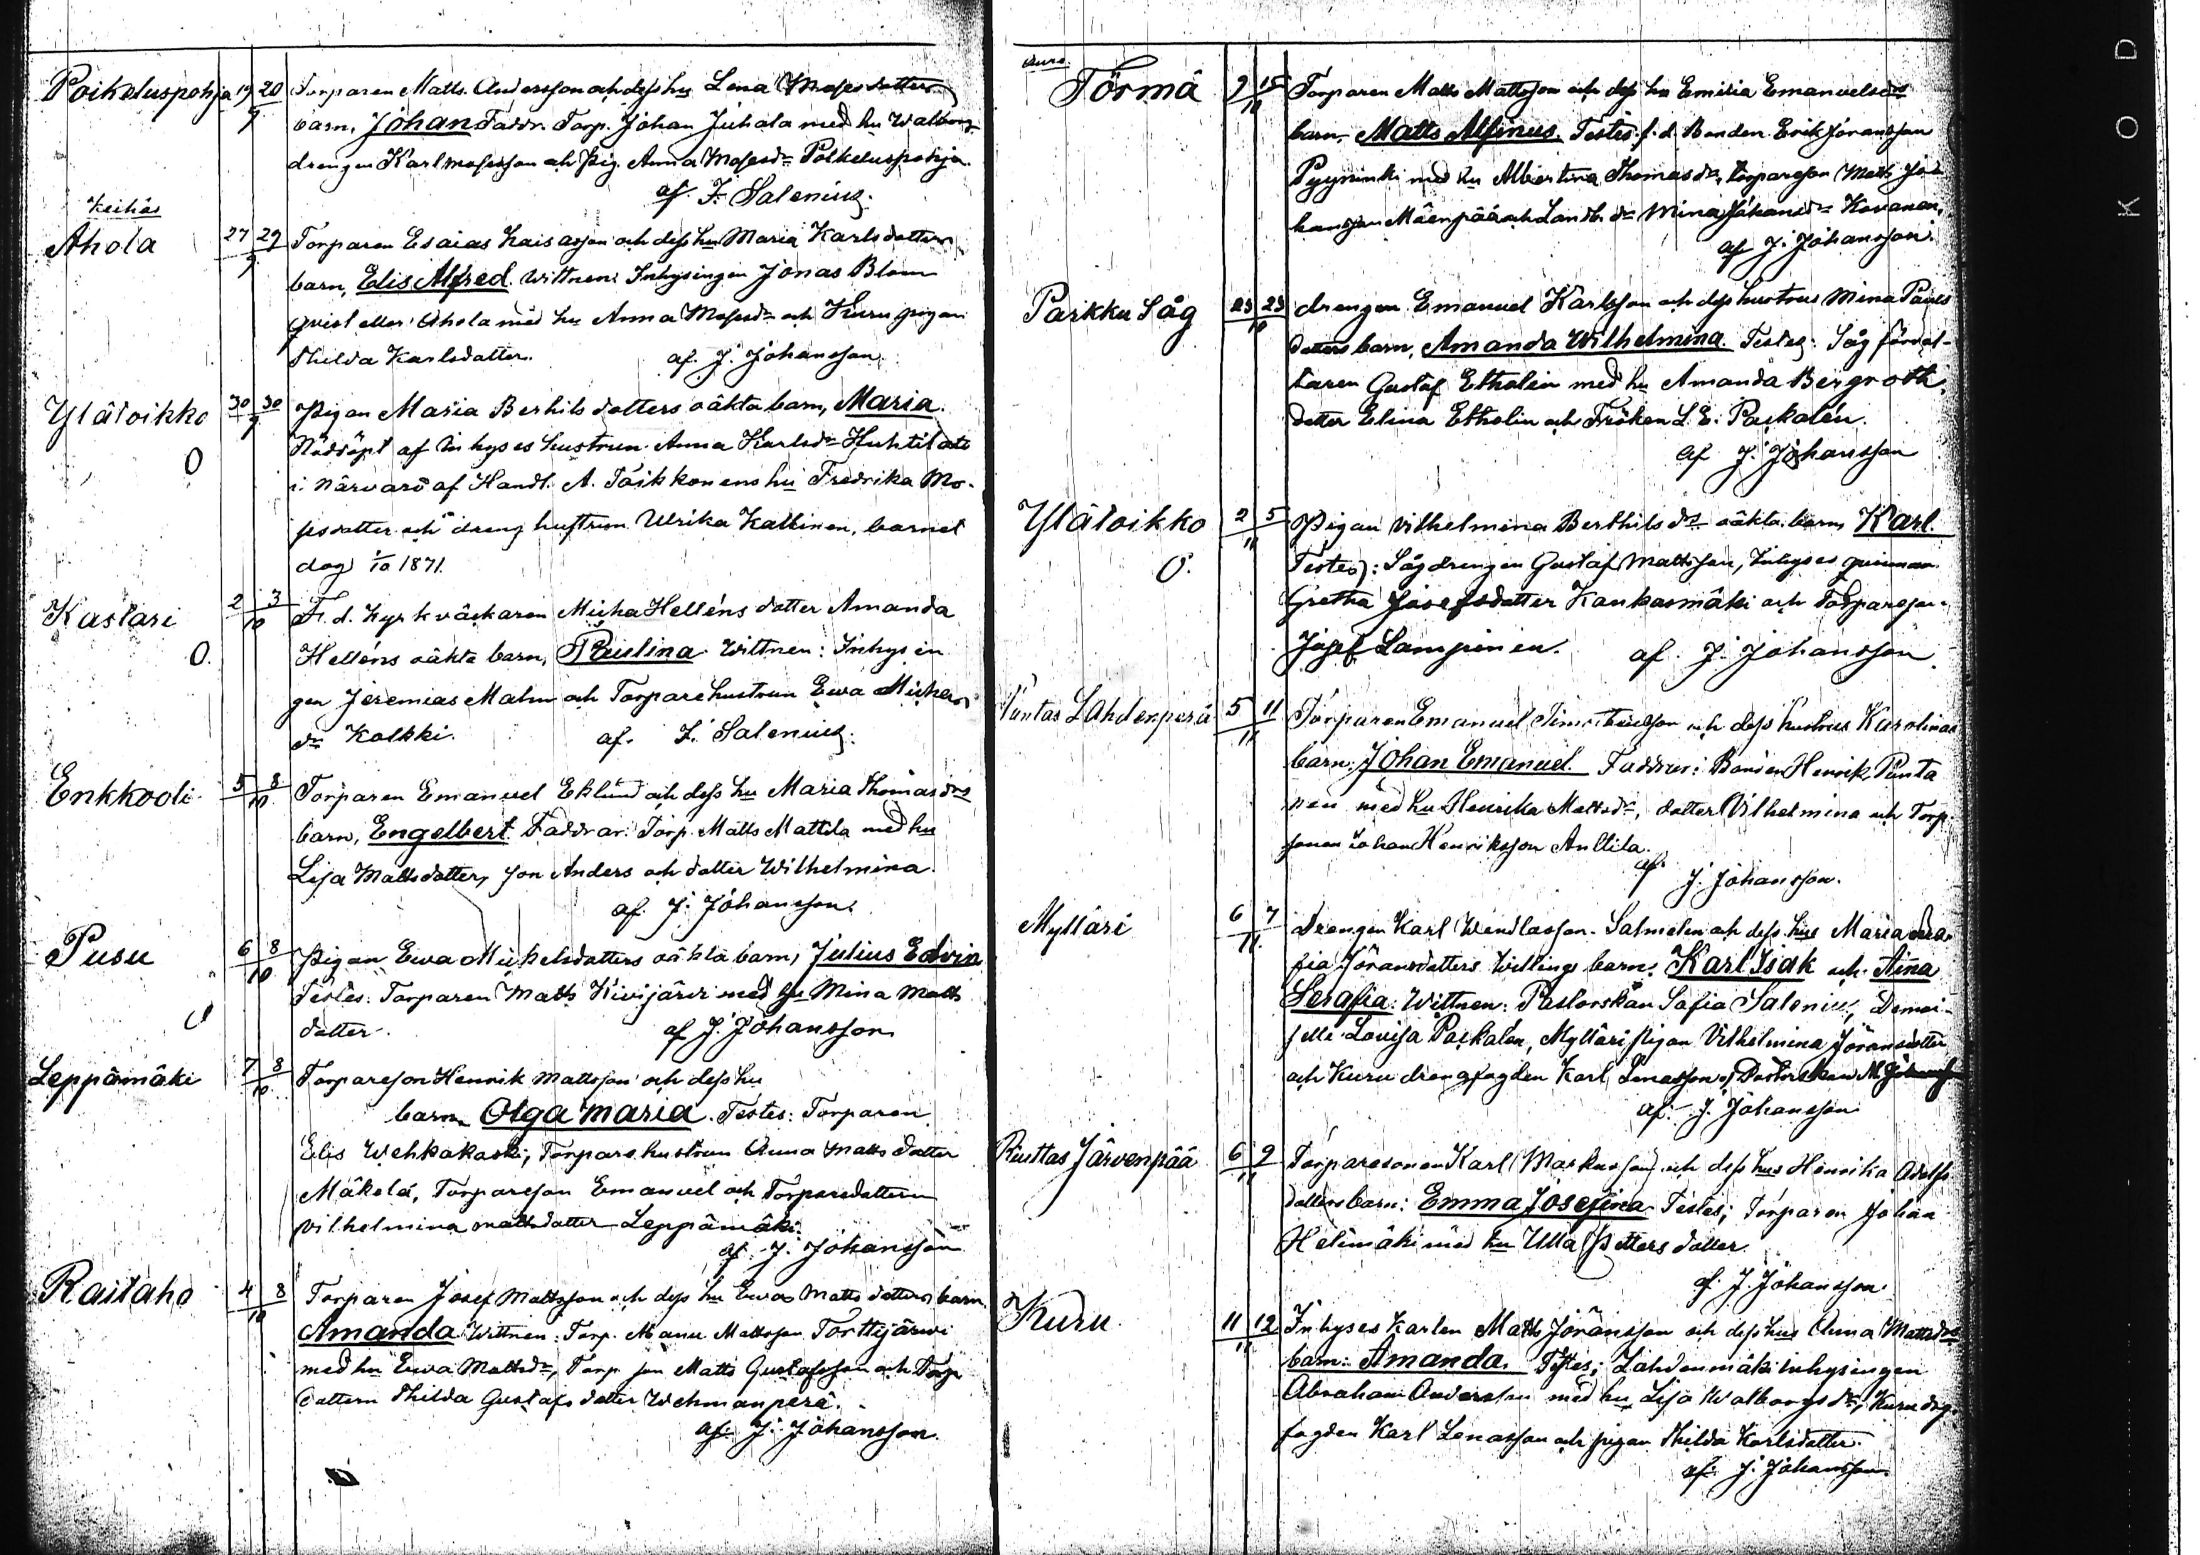 Poikeluspohja 19 20/9 Torparen Matts Andersson och dess hu Lena Mosesdotters
barn, Johan Faddr. Torp. Johan Juhola med hu Walborg
drengen Karl Mosesson och Pig. Anna Mosesdr Poikeluspohja.
af F. Salenius.
Keihäs
Ahola 27 29/9 Torparen Esaias Esaiasson och dess hu Maria Karlsdotters
barn, Elis Alfred. Wittnen: Inhysingen Jonas Blom
qvist eller Ahola med hu Anna Mosesdr och Kuru pigan
Thilda Karlsdotter. af. J. Johansson.
Ylätoikko 30 30/9 Pigan Maria Berhilsdotters oäkta barn, Maria.
0 Nöddöpt af inhyses hustrun Anna Karlsdr
i närvaro af Handl. A. Taikkonens hu Fredrika Mo-
sesdotter och dreng hustrun Ulrika Kallinen, barnet
dog 1/10 1871.
Kastari 2 3/10 F. d. kyrkväckaren Micha Helléns dotter Amanda
0. Helléns oäkta barn, Paulina. Wittnen: Inhysin
gen Jeremias Malm och Torparehustrun Ewa Michels
dr Kolkki. af. F. Salenius.
Enkkooli 5 8/10 Torparen Emanuel Eklund och dess hu Maria Thomasdrs
barn, Engelbert. Faddrar: Torp. Matts Mattila med hu
Lisa Mattsdotter, son Anders och dotter Wilhelmina.
af. J. Johansson.
Pusu 6 8/10 Pigan Ewa Mickelsdotters oäkta barn, Julius Edvin
Testes: Torparen Matts Kivijärvi med hu Mina Matts
dotter. af J. Johansson
Leppämäki 7 8/10 Torpareson Henrik Mattsson och dess hu
barn Olga Maria. Testes: Torparen
Elis Wehkakoski, Torparehustrun Anna Mattsdotter
Mäkelä, Torpareson Emanuel och Torparedottern
Vilhelmina Mattsdotter Leppämäki.
af. J. Johansson
Raitaho 4 8/10 Torparen Josef Mattsson och dess hu Ewa Mattsdotters barn
Amanda. Wittnen: Torp. Manu Mattsson Torttijärvi
med hu Ewa Mattsdr, Torp. son Matts Gustafsson och Torp
dottern Thilda Gustafsdotter Wehmanperä.
af. J. Johansson.
Aure.
Törmä 9 15/10 Torparen Matts Mattsson och dess hu Emilia Emanuelsdrs
barn, Matts Alfinus. Testes: f. d. Bonden Erik Jöransson
Pyyninki med hu Albertina Thomasdr, torpareson Matts Jo
hansson Mäenpää och Landb. dr Mina Johansdr Kovanen,
af J. Johansson.
Parkku Såg 23 23/10 drengen Emanuel Karlsson och dess hustrus Mina Pauls
dotters barn, Amanda Wilhelmina. Testes: Såg förval-
taren Gustaf Etholén med hu Amanda Bergroth,
dotter Elina Etholin och Fröken L. E. Paskalén.
af J. Johansson
Ylätoikko 2 5/11 Pigan Vilhelmina Berthilsdrs oäkta barn Karl.
O. Testes: Sågdrengen Gustaf Mattsson, Inhyses quinnan
Gretha Josefsdotter Kankasmäki och Torpareson
Josef Lampinen. af. J. Johansson.
Puntas Lahdenperä 5 11/11 Torparen Emanuel Timoteusson och dess hustrus Karolinas
barn: Johan Emanuel. Faddrar: Bonden Henrik Punta
nen med hu Henrika Mattsdr, dotter Vilhelmina och Torp.
sonen Johan Henriksson Anttila.
af. J. Johansson.
Mylläri 6 7/11 Drengen Karl Wendlasson Salmelen och dess hus Maria
fia Jöransdotters Tvillings barn, Karl Isak och Aina
Serafia. Wittnen: Pastorskan Sofia Salenius, Demoi-
selle Lovisa Paskalén, Mylläri pigan Vilhelmina Jöransdotter
och Kuru drengfogden Karl Lenasson
af. J. Johansson
Ruttas Järvenpää 6 9/11 Torparesonen Karl Markusson och dess hus Henrika Adolfs
dotters barn: Emma Josefina. Testes; Torparen Johan
Helimäki med hu Ulla Pettersdotter.
af. J. Johansson.
Kuru 11 12/11 Inhyses karlen Matts Jöransson och dess hus Anna Mattsdrs
barn: Amanda. Testes; Lahdenmäki inhysingen
Abraham Andersson med hu Lisa Walborgsdr, Kuru drg.
fogden Karl Lenasson och pigan Thilda Karlsdotter.
af. J. Johansson.
KOD